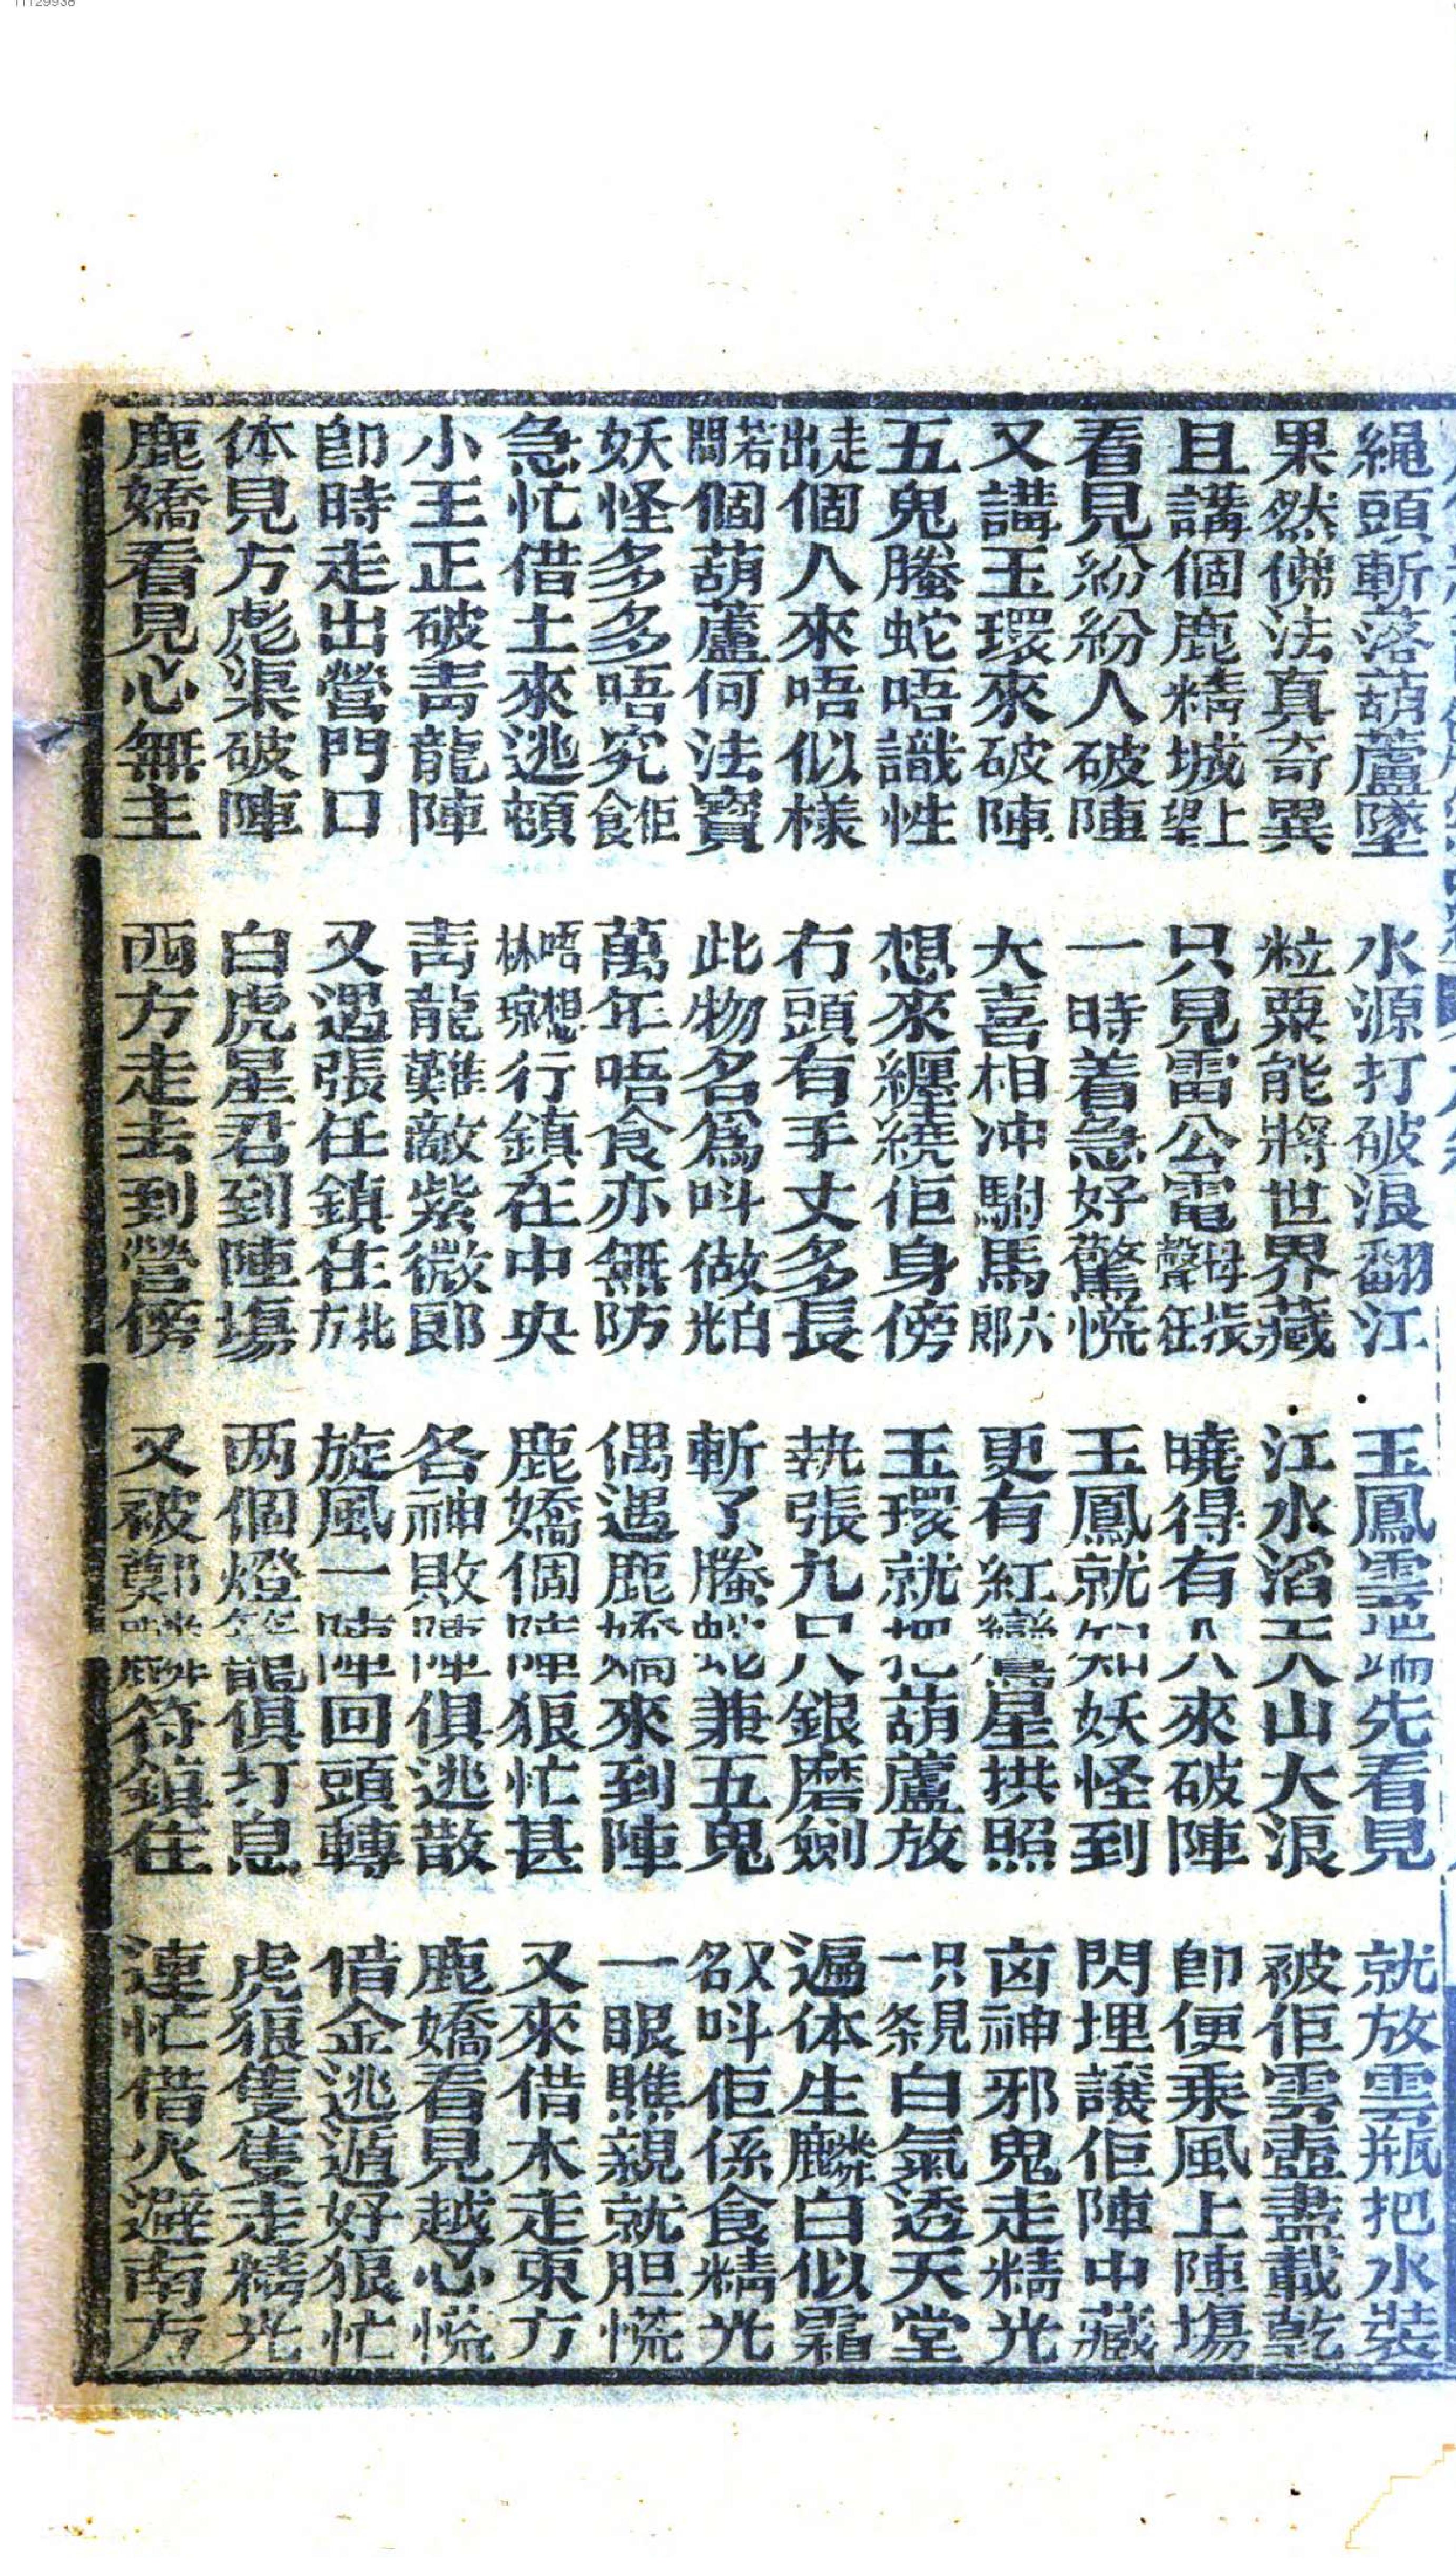 11129938
繩頭斬落葫蘆墜 水源打破浪翻江 玉鳳雲端先看見 就放雲瓶把水裝
果然佛法真奇異 粒粟能將世界藏 江水滔天人山大浪 被佢雲壺盡載乾
且講個鹿精城上望 只見雷公電母聲狂 曉得有人來破陣 即便乘風上陣場
看見紛紛人破陣 一時着急好驚慌 玉鳳就知妖怪到 閃埋讓佢陣中藏
又講玉環來破陣 大喜相冲駙馬六郎 更有紅鸞星拱照 凶神邪鬼走精光
五鬼騰蛇唔識性 想來纏繞佢身傍 玉環就把葫蘆放 只見一条白氣透天堂
走出個人來唔似樣 冇頭有手丈多長 執張九口八銀磨劍 遍体生麟白似霜
若問個葫蘆何法寶 此物名爲呌做白光 斬了騰蛇兼五鬼 又名呌佢係食精光
妖怪多多唔究佢食 萬年唔食亦無防 偶遇鹿嬌來到陣 一眼瞧親就胆慌
急忙借土來逃頓 唔想林瓊行鎮在中央 鹿嬌個陣狠忙甚 又來借木走東方
小王正破青龍陣 青龍難敵紫微郎 各神敗陣俱逃散 鹿嬌看見越心慌
即時走出營門口 又遇張任鎮住北方 旋風一陣回頭轉 借金逃遁好狠忙
体見方彪渠破陣 白虎星君到陣塲 两個燈籠俱打息 虎狼隻隻走精光
鹿嬌看見心無主 西方走去到營傍 又被鄭符鎮住 連忙借火避南方